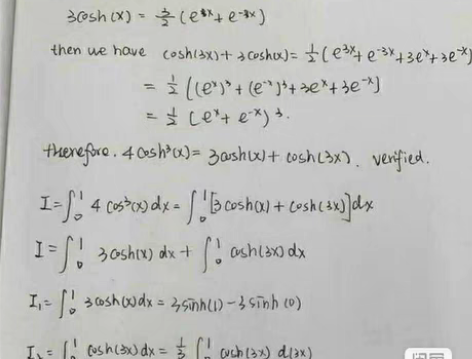 3cosh(x) = 3/2 (e^x + e^-x)
then we have cosh(3x) + 3cosh(x) = 1/2 (e^3x + e^-3x + 3e^x + 3e^-x)
= 1/2 ((e^x)^3 + (e^-x)^3 + 3e^x + 3e^-x]
= 1/2 (e^x + e^-x)^3.
therefore. 4cosh^3(x) = 3cosh(x) + cosh(3x). verified.
I = ∫_0^1 4 cos^3(x) dx = ∫_0^1 [3cosh(x) + cosh(3x)] dx
I = ∫_0^1 3cosh(x) dx + ∫_0^1 cosh(3x) dx
I₁ = ∫_0^1 3cosh(x) dx = 3sinh(1) - 3sinh(0)
I₂ = ∫_0^1 cosh(3x) dx = 1/3 ∫_0^1 cosh(3x) d(3x)